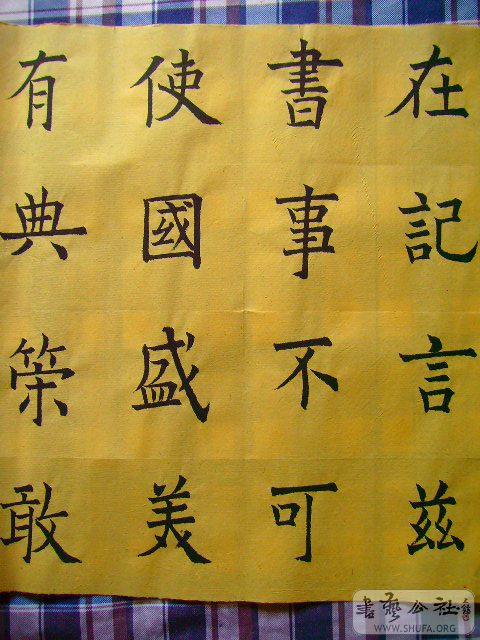 在記言茲
書事不可
使國盛美
有典策敢
書藝公社
WWW.SHUFA.ORG